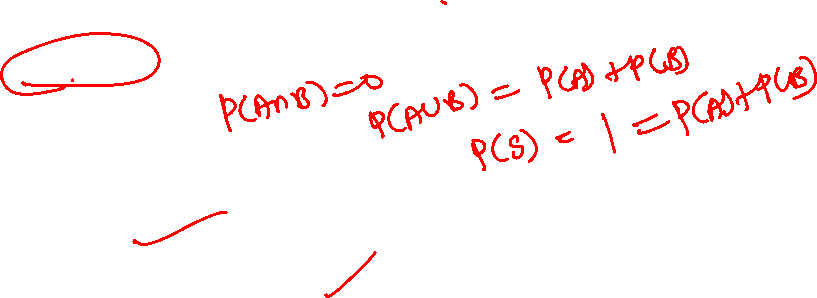 P(A∩B)=0
P(A∪B) = P(A)+P(B)
P(S) = 1 = P(A)+P(B)